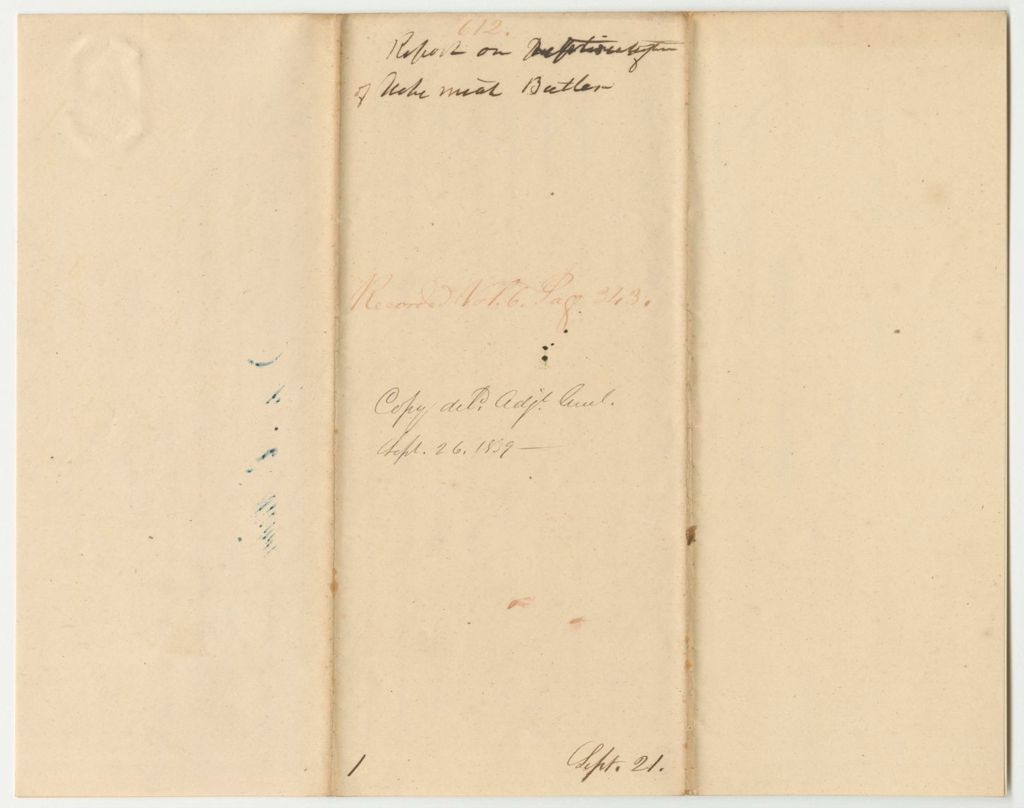 612.
Report on
of Nehemiah Butler
Recorded Vol. 6. Pag. 313.
Copy deld. Adjt. Genl.
Sept. 26. 1839 —
1
Sept. 21.